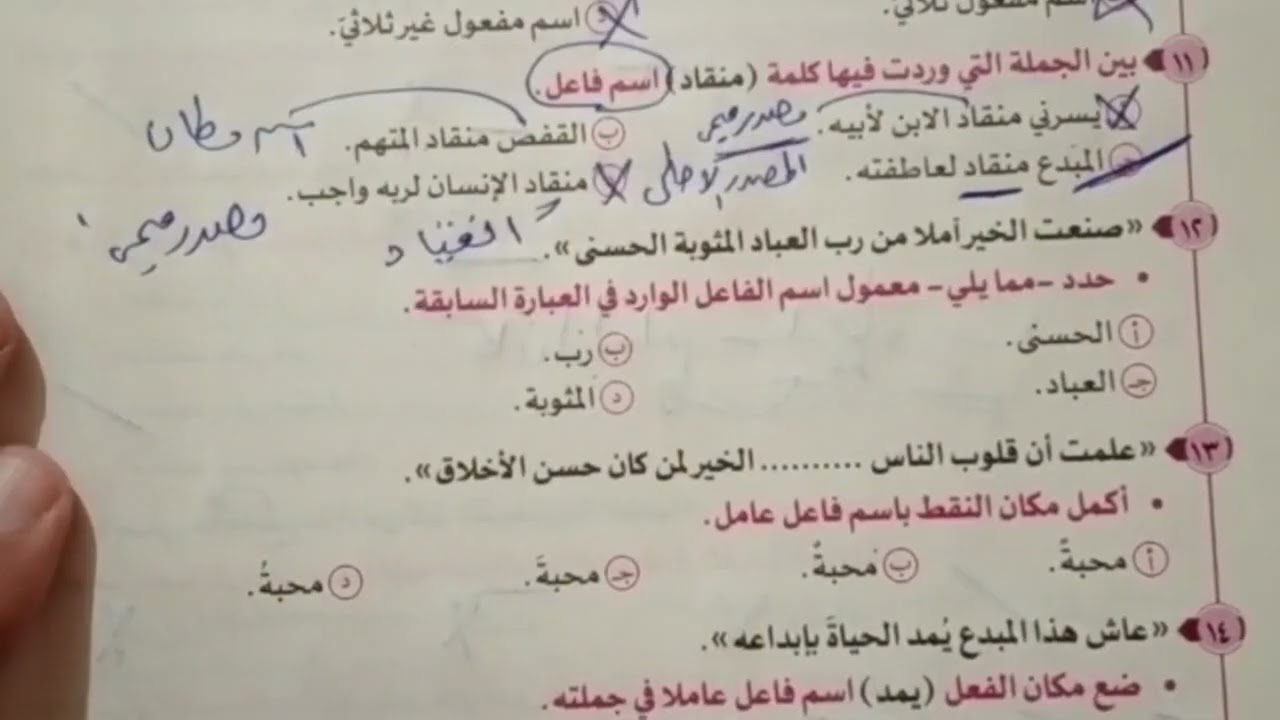 اسم مفعول ثلاثي.
د اسم مفعول غير ثلاثيّ.
١١ بين الجملة التي وردت فيها كلمة (منقاد) اسم فاعل.
أ يسرني منقاد الابن لأبيه. مصدر ميمي
ب القفص منقاد المتهم. اسم مكان
جـ المبدع منقاد لعاطفته. المصدر الأصلي
د منقاد الإنسان لربه واجب.
انقياد
مصدر ميمي
١٢ «صنعت الخير آملا من رب العباد المثوبة الحسنى».
• حدد -مما يلي- معمول اسم الفاعل الوارد في العبارة السابقة.
أ الحسنى.
ب رب.
جـ العباد.
د المثوبة.
١٣ «علمت أن قلوب الناس .......... الخير لمن كان حسن الأخلاق».
• أكمل مكان النقط باسم فاعل عامل.
أ محبةً.
ب محبةٌ.
جـ محبةَ.
د محبةُ.
١٤ «عاش هذا المبدع يُمد الحياةَ بإبداعه».
• ضع مكان الفعل (يمد) اسم فاعل عاملا في جملته.